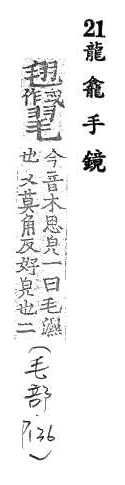 21龍龕手鏡
或作毣
今音木思皃一曰毛濕
也又莫角反好皃也二
(毛部
P136)